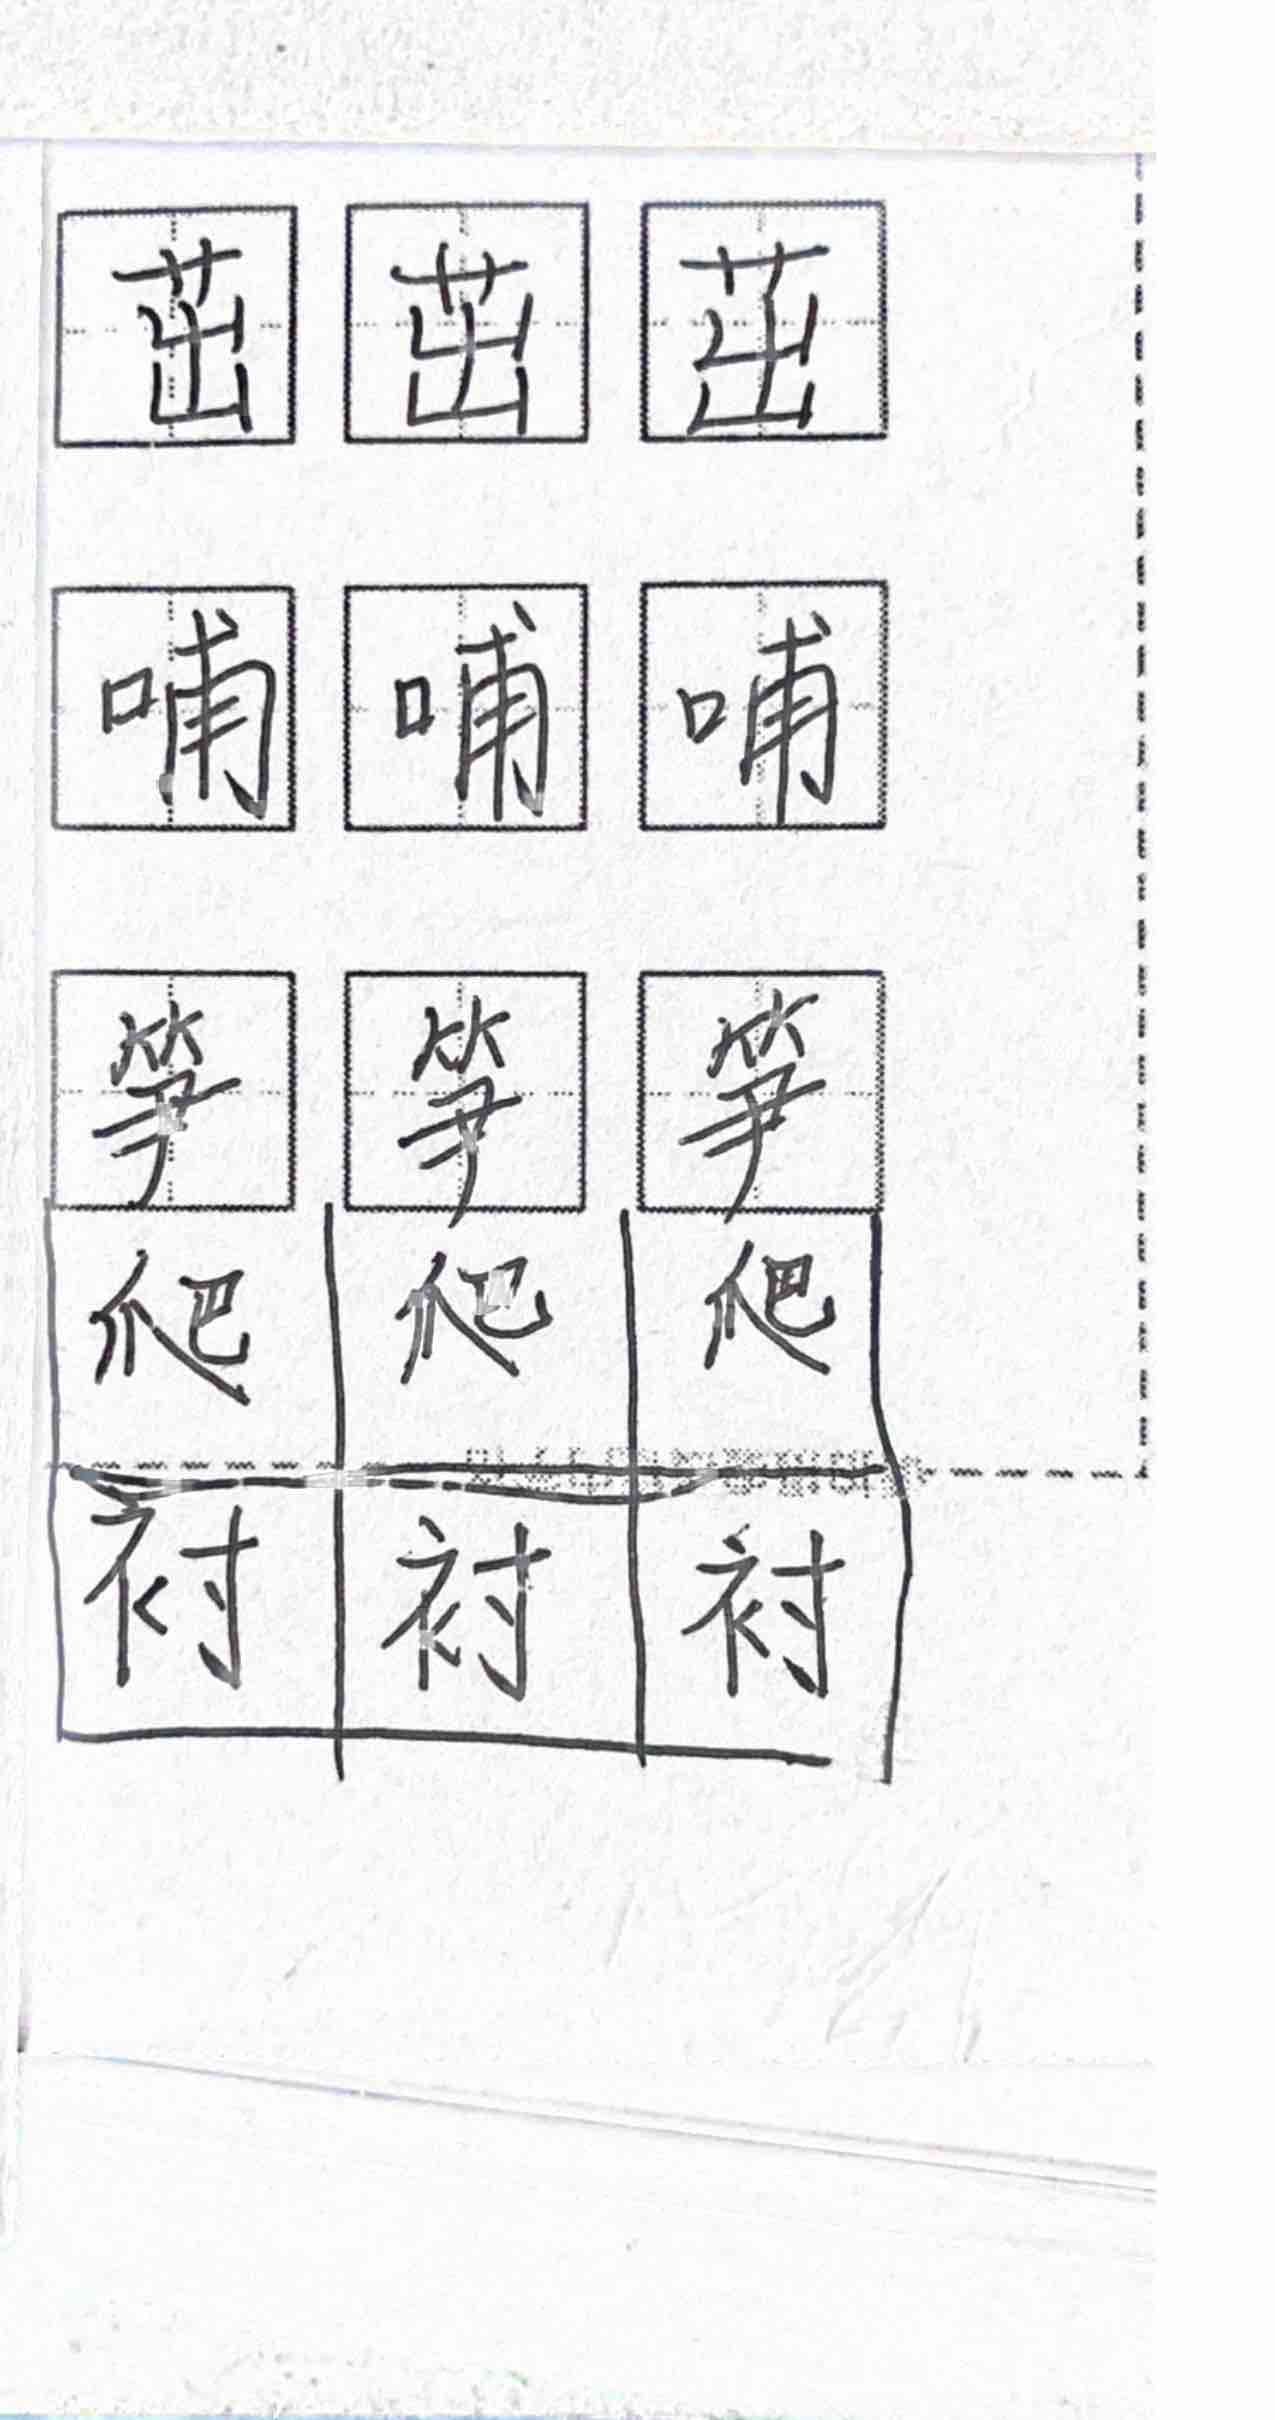 茁 茁 茁
哺 哺 哺
笋 笋 笋
爬 爬 爬
衬 衬 衬